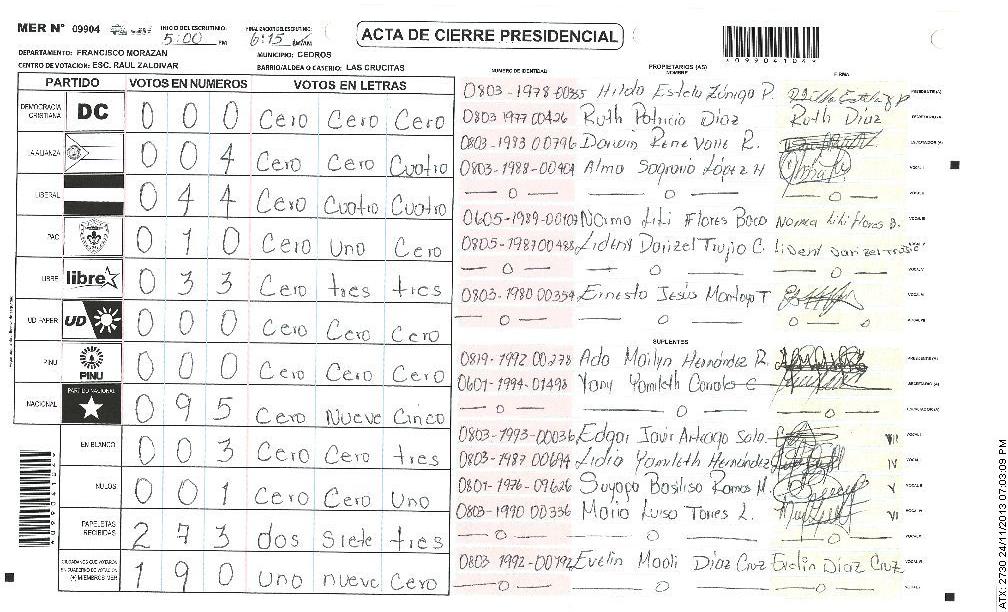 MER Nº 09904 INICIO DEL ESCRUTINIO: 5:00 PM FINALIZACION DEL ESCRUTINIO: 6:15 ACTA DE CIERRE PRESIDENCIAL
DEPARTAMENTO: FRANCISCO MORAZAN MUNICIPIO: CEDROS
CENTRO DE VOTACION: ESC. RAUL ZALDIVAR BARRIO/ALDEA O CASERIO: LAS CRUCITAS
PARTIDO VOTOS EN NUMEROS VOTOS EN LETRAS
DEMOCRACIA CRISTIANA DC 0 0 0 Cero Cero Cero
LA ALIANZA 0 0 4 Cero Cero Cuatro
LIBERAL 0 4 4 Cero Cuatro Cuatro
PAC 0 1 0 Cero Uno Cero
LIBRE libre 0 3 3 Cero tres tres
UD FAPER UD 0 0 0 Cero Cero Cero
PINU PINU 0 0 0 Cero Cero Cero
NACIONAL PARTIDO NACIONAL 0 9 5 Cero Nueve Cinco
EN BLANCO 0 0 3 Cero Cero tres
NULOS 0 0 1 Cero Cero Uno
PAPELETAS RECIBIDAS 2 7 3 dos Siete tres
CIUDADANOS QUE VOTARON EN CUADERNO DE VOTACION (+) MIEMBROS MER 1 9 0 Uno nueve Cero
NUMERO DE IDENTIDAD PROPIETARIOS (AS) NOMBRE FIRMA
0803-1978-00335 Hilda Estela Zúniga P. PRESIDENTE (A)
0803 1977 00426 Ruth Patricia Díaz Ruth Díaz SECRETARIO (A)
0803-1983 00796 Darwin Rene Valle R. ESCRUTADOR (A)
0803-1988-00904 Alma Sagrario López H VOCAL I
— 0 — — 0 — — 0 — VOCAL II
0605-1989-00109 Norma Lili Flores Baca Norma Lili flores B. VOCAL III
0805-1987 00488 Lideni Darizel Trujio C. VOCAL IV
— 0 — — 0 — — 0 — VOCAL V
0803-1980 00354 Ernesto Jesús Montoya T VOCAL VI
— 0 — 0 0 0 VOCAL VII
SUPLENTES
0819-1992 00278 Ada Mailyn Hernández R. PRESIDENTE (A)
0601-1994-01498 Yany Yamileth Canales C SECRETARIO (A)
— 0 — 0 0 ESCRUTADOR (A)
0803-1993-00036 Edgar Javir Arteaga Sala. VOCAL I VII
0803-1987 00694 Lidia Yamileth Hernández VOCAL II IV
0801-1976-09626 Suyapa Basilisa Ramos M. VOCAL III V
0803-1990 00336 Maria Luisa Torres L. VOCAL IV VI
0803 1992-00792 Evelin Maoli Díaz Cruz Evelin Díaz Cruz VOCAL VI
— 0 — — 0 — — 0 — VOCAL VII
ATX: 2730 24/11/2013 07:03:09 PM